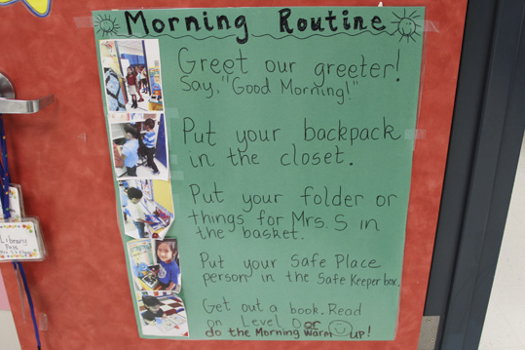 Morning Routine
Greet our greeter!
Say, "Good Morning!"
Put your backpack
in the closet.
Put your folder or
things for Mrs. S in
the basket.
Put your Safe Place
person in the Safe Keeper box.
Get out a book. Read
on Level 0 or
do the Morning Warm up!
Library
Pass